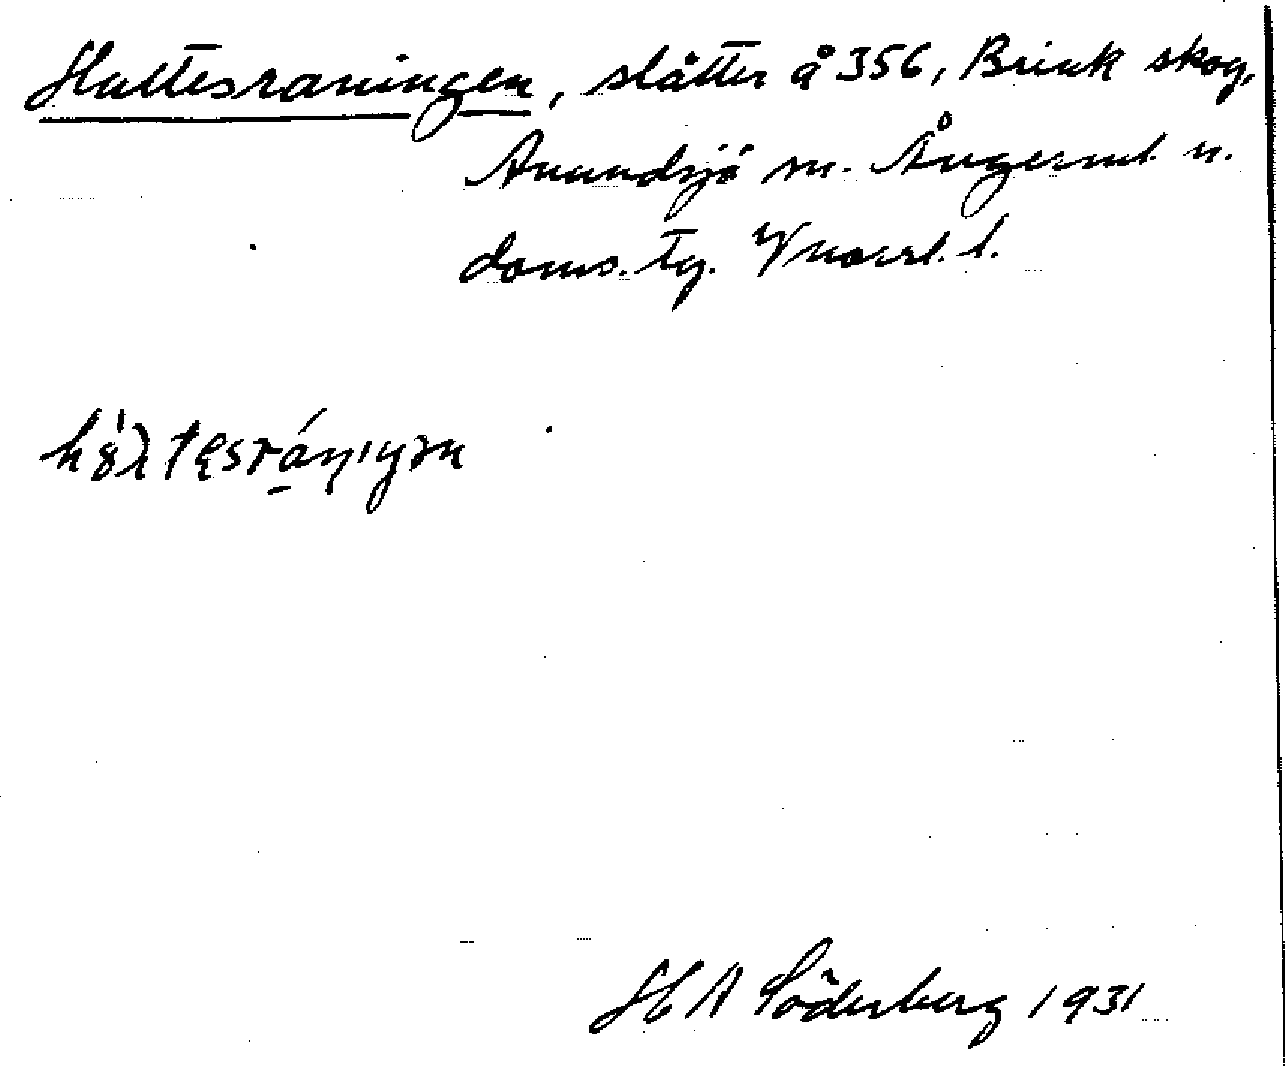 Hultesraningen, slåtter å 356, Brink skog,
Anundsjö sn. Ångerml. n.
doms. tg. Vnorrl. l.
H A Söderberg 1931